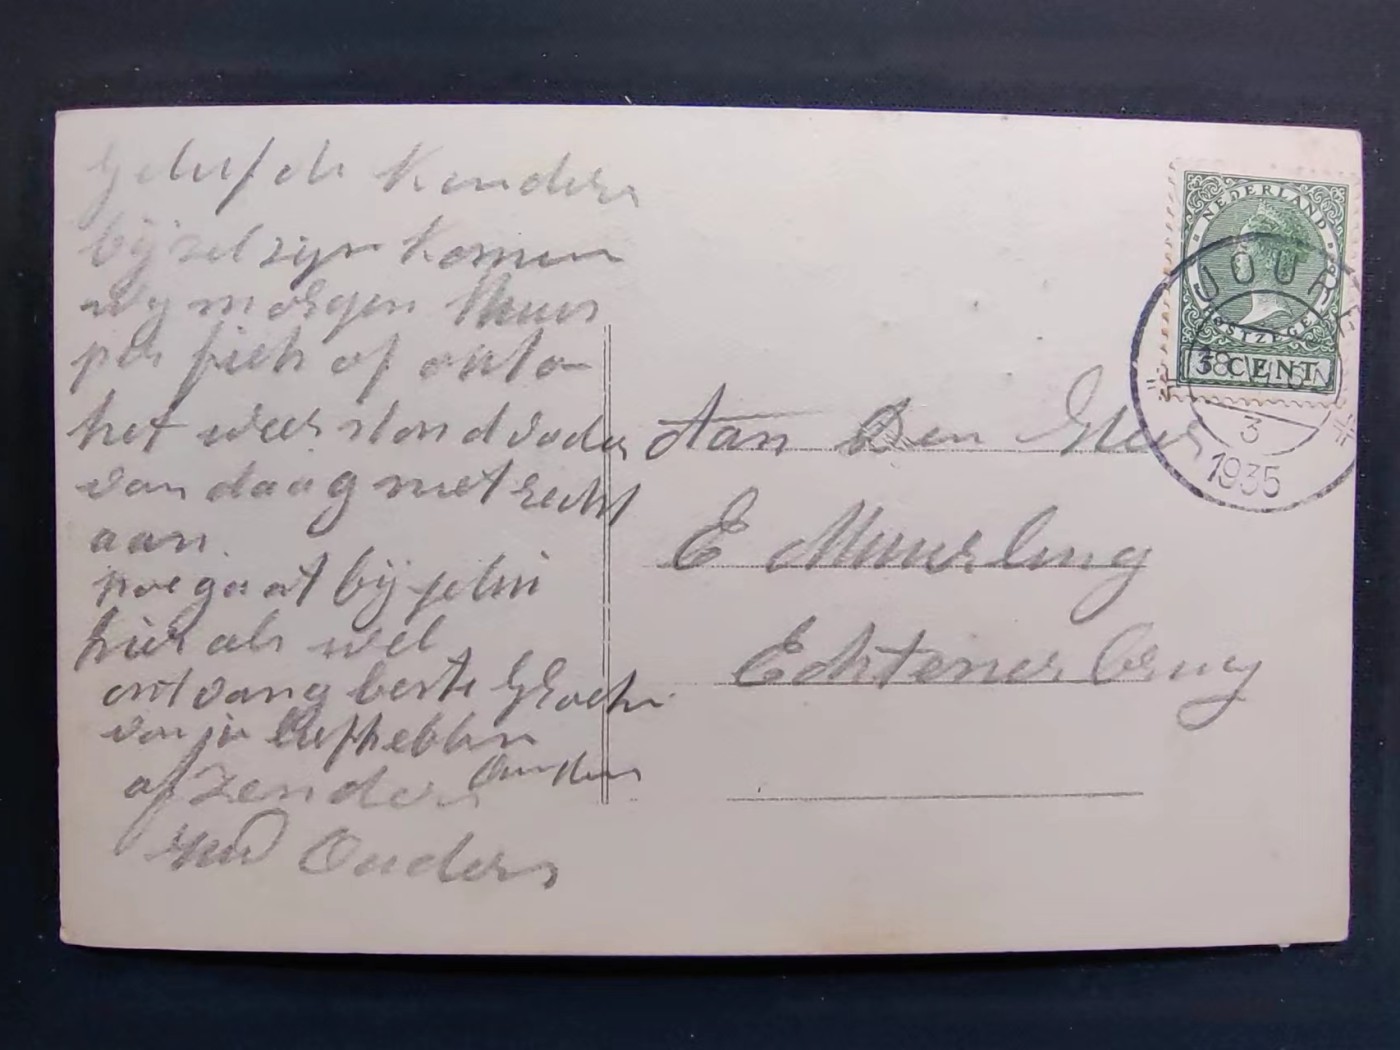 Geliefde Kenders
bij zel zijn komen
wij morgen thuus
per fiets of outo
het weer stond vader
van daag niet recht
aan.
hoe gaat bij jelui
hier als wel
ontvang beste Groeten
van je liefhebben
Ouders
afzender
uw Ouders
NEDERLAND
POSTZEGEL
3 CENT
JOURE
3
1935
Aan Den Heer
E Muurling
Echtenerbrug